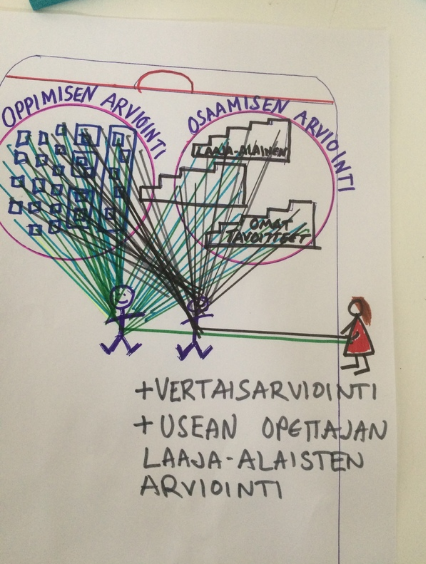 OPPIMISEN ARVIOINTI
OSAAMISEN ARVIOINTI
LAAJA-ALAINEN
OMAT
TAVOITTEET
+VERTAISARVIOINTI
+ USEAN OPETTAJAN
LAAJA-ALAISTEN
ARVIOINTI